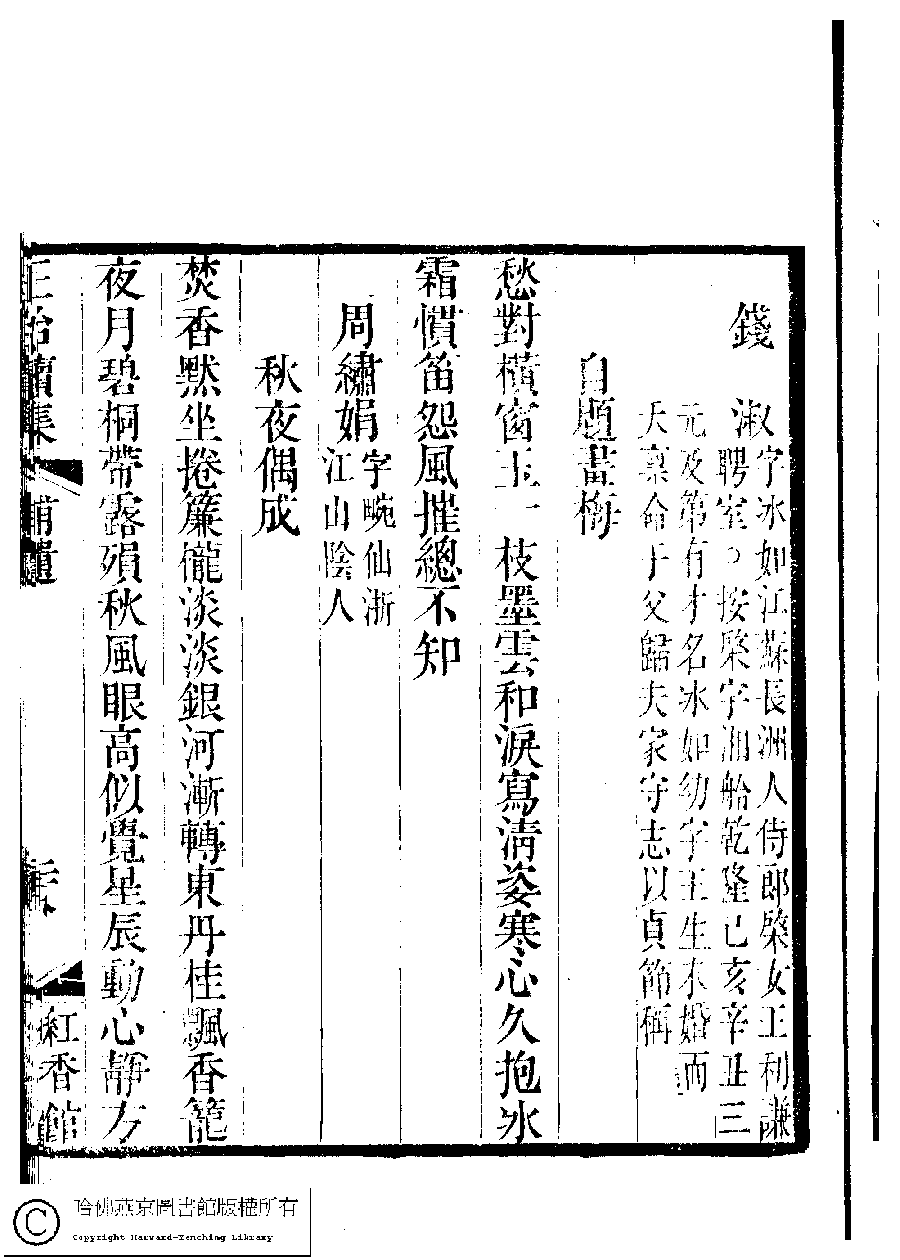 錢淑字冰如江蘇長洲人侍郎棨女王利謙
聘室○按棨字湘舲乾隆己亥辛丑三
元及第有才名冰如幼字王生未婚而
夭稟命于父歸夫家守志以貞節稱
自題畫梅
愁對橫窗玉一枝墨雲和淚寫淸姿寒心久抱冰
霜慣笛怨風摧總不知
周繡娟字畹仙浙
江山陰人
秋夜偶成
焚香默坐捲簾櫳淡淡銀河漸轉東丹桂飄香籠
夜月碧桐帶露殞秋風眼高似覺星辰動心靜方
正始續集 補遺
紅香館
哈佛燕京圖書館版權所有
Copyright Harvard-Yenching Library